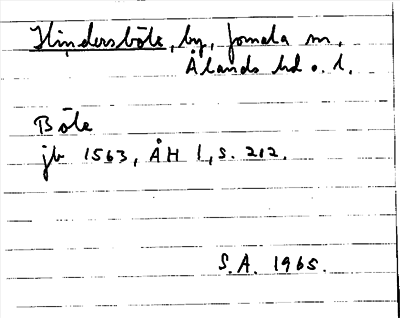 Hindersböle, by, Jomala sn,
Ålands hd o. l.
Böle
jb 1563, ÅH 1, s. 212.
S.A. 1965.